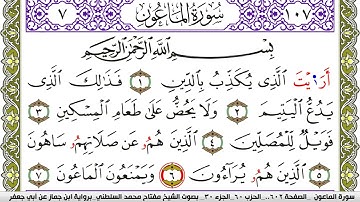 ٧ سُورَةُ المَاعُونِ ١٠٧
بِسْمِ اللَّهِ الرَّحْمَٰنِ الرَّحِيمِ
أَرَٰيْتَ الَّذِي يُكَذِّبُ بِالدِّينِ ١ فَذَٰلِكَ الَّذِي
يَدُعُّ الْيَتِيمَ ٢ وَلَا يَحُضُّ عَلَىٰ طَعَامِ الْمِسْكِينِ ٣
فَوَيْلٌ لِلْمُصَلِّينَ ٤ الَّذِينَ هُمُۥ عَن صَلَاتِهِمُۥ سَاهُونَ
٥ الَّذِينَ هُمُۥ يُرَآءُونَ ٦ وَيَمْنَعُونَ الْمَاعُونَ ٧
سورة الماعون . الصفحة ٦٠٢ . الحزب ٦٠ . الجزء ٣٠ . بصوت الشيخ مفتاح محمد السلطني . برواية ابن جماز عن أبي جعفر